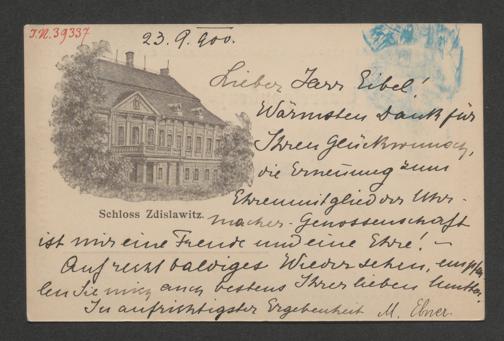 I.N. 39337
23.9.900.
Lieber Herr Eibel!
Wärmsten Dank für
Ihren Glückwunsch,
die Ernennung zum
Ehrenmitglied der Uhr-
Schloss Zdislawitz.
macher-Genossenschaft
ist mir eine Freude und eine Ehre! –
Auf recht baldiges Wiedersehen, empfeh
len Sie mich auch bestens Ihrer lieben Mutter.
In aufrichtigster Ergebenheit M. Ebner.